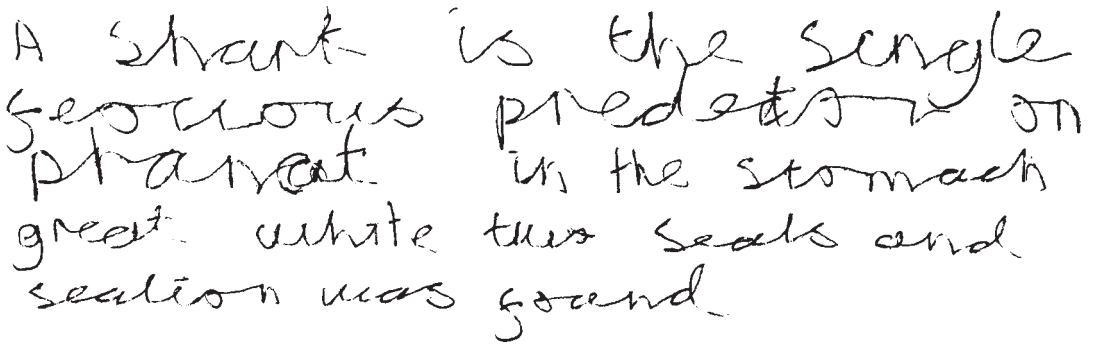 A shark is the single
ferocious predetor on
phanat in the stomach
great white two seals and
sealion was found